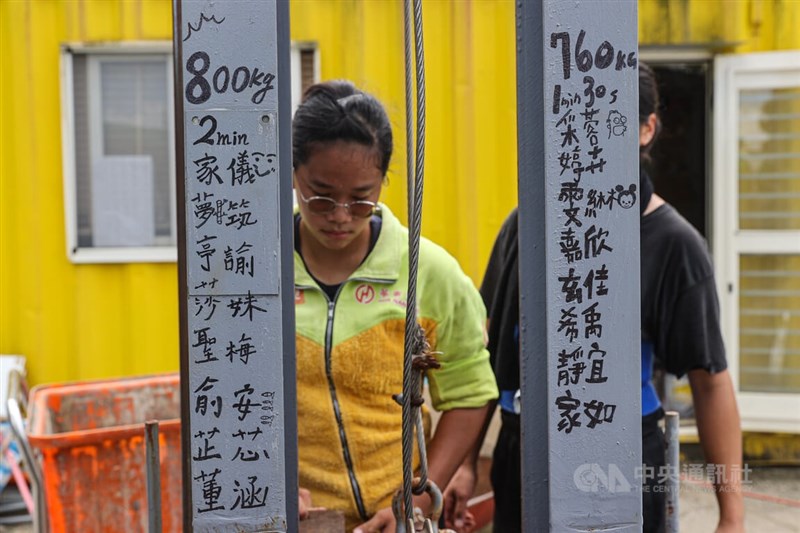 800kg
2min
家儀
夢筑
亭諭
莎姝
聖梅
俞安
芷芯
董涵
760kg
1min30s
采蓉
婷卉
雯姝
嘉欣
玄佳
希禹
靜宜
家如
中央通訊社